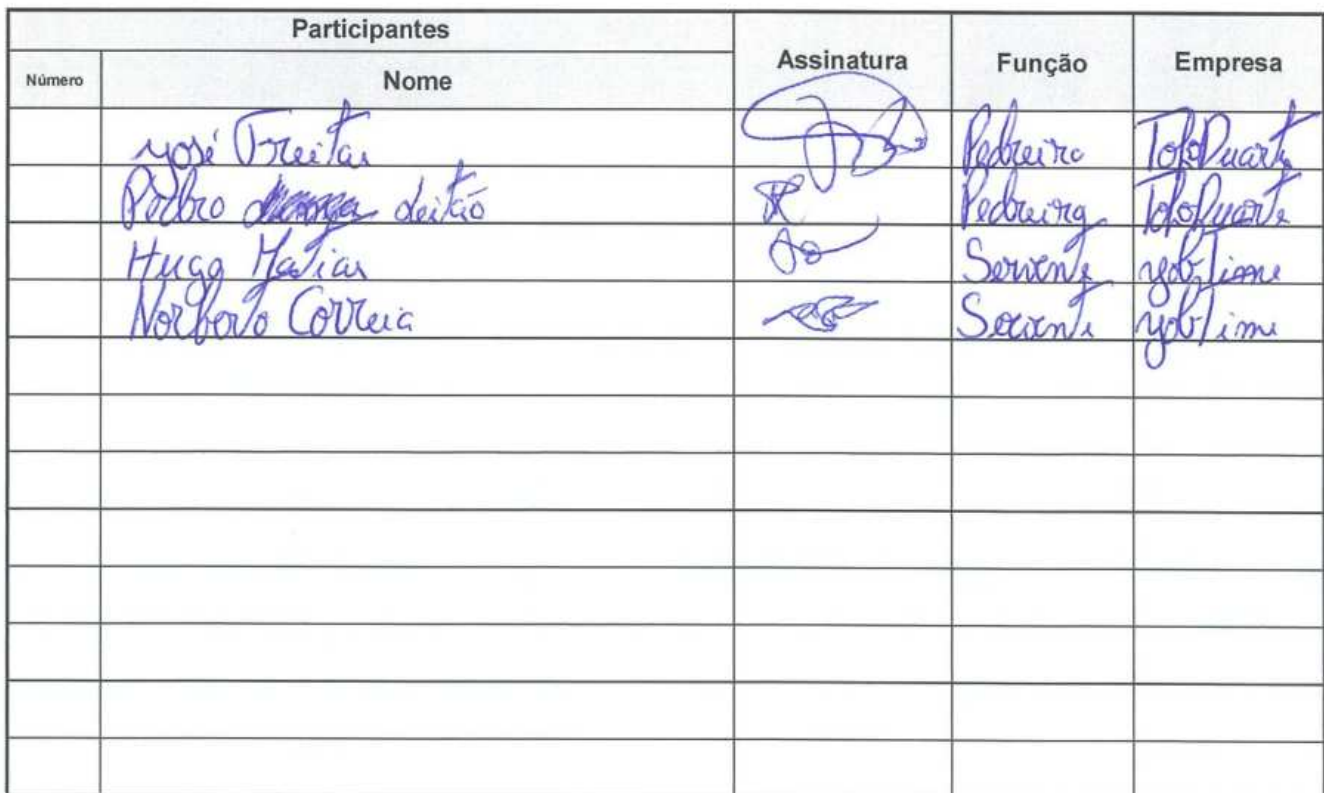 Participantes Assinatura Função Empresa
Número Nome
José Freitas Pedreiro TopoDuarte
Pedro Leitão Pedreiro TopoDuarte
Hugo Matias Servente JobTime
Norberto Correia Servente JobTime